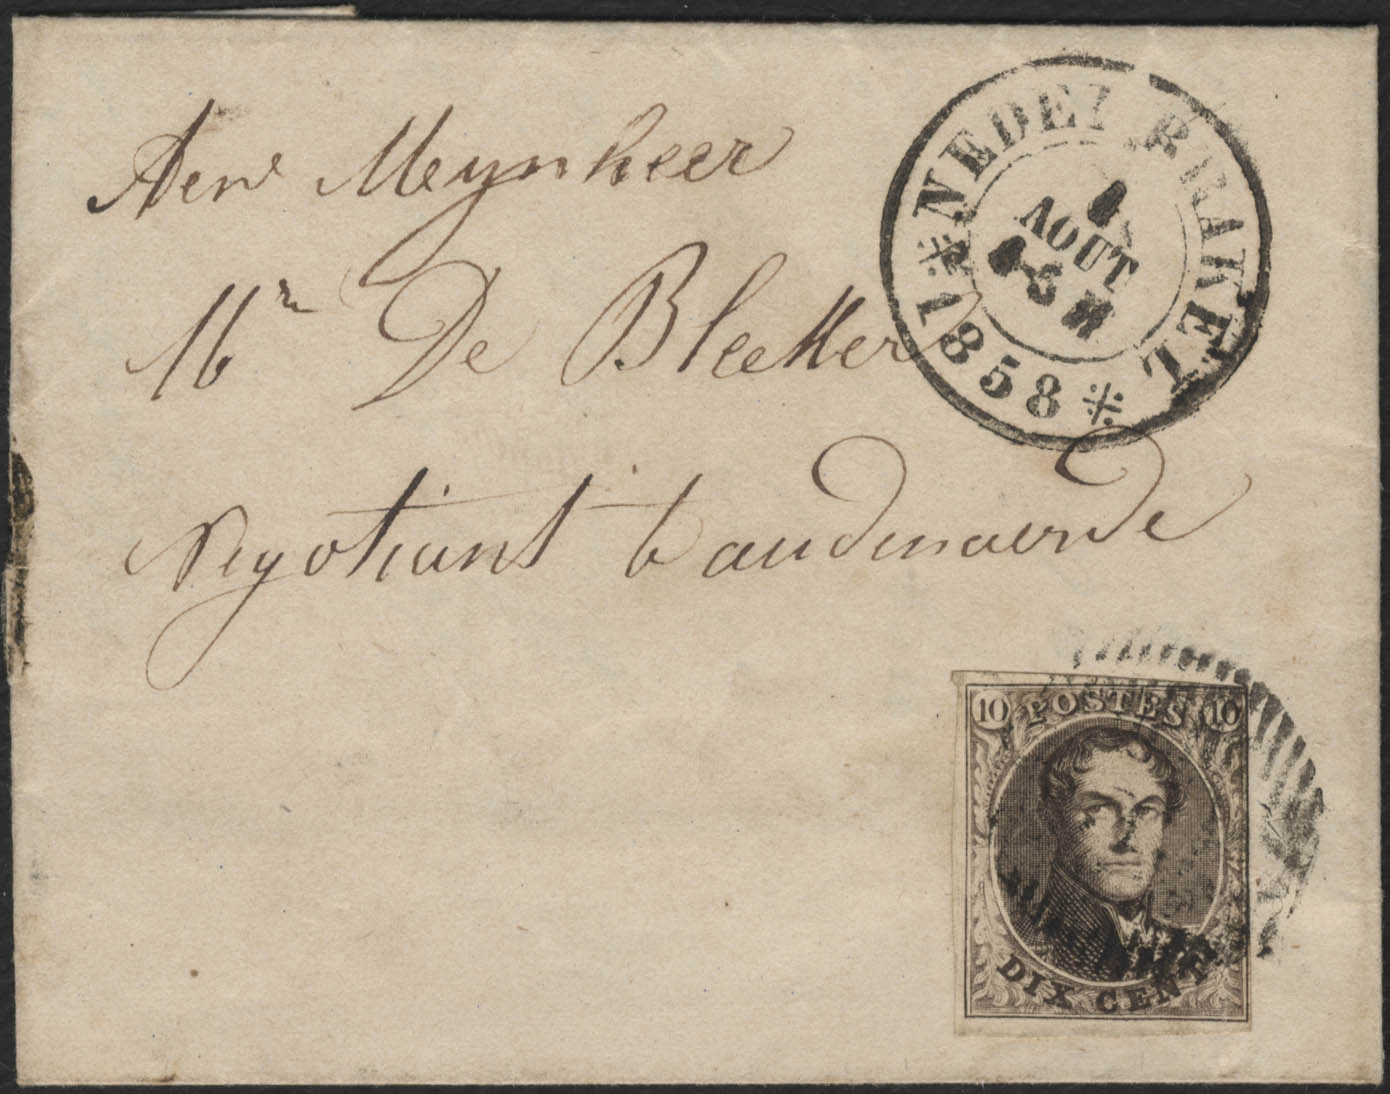 Aen Mynheer
Mr De Bleeker
Negotiant t audenaerde
NEDER BRAKEL
AOUT
1858
10 POSTES 10
DIX CENT